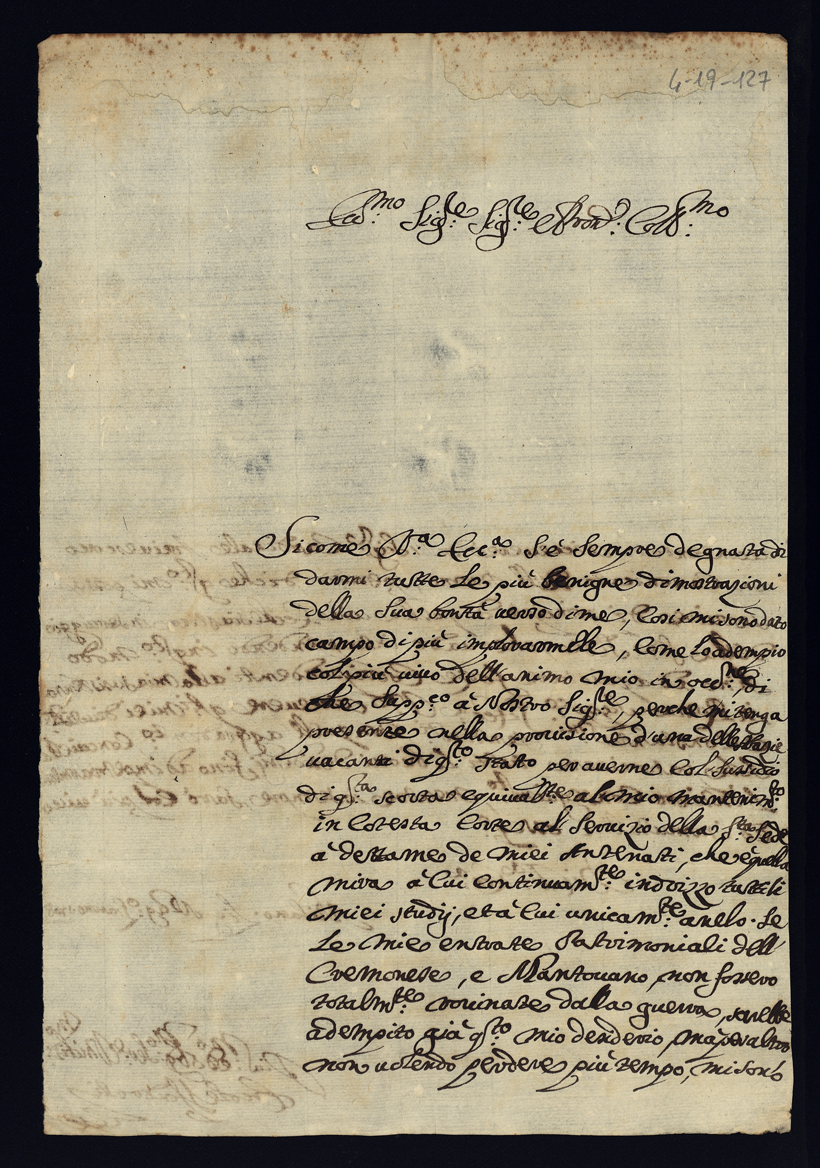 4-19-127
Ecc.mo Sig.re Sig.re Pron. Coll.mo
Sicome V.a Ecc.a s'è sempre degnata di
darmi tutte le più benigne dimostrazioni
della sua bontà verso di me, così mi sono dato
campo di più improvarmele, come lo adempio
col più vivo dell'animo mio in occ.ne, di
che supp.co à Nostro Sig.re, perche mi tenga
presente nella provisione d'una delle
vacanti di q.sto stato per averne col sussidio
di q.sta scorta equival.te al mio mantenim.to
in cotesta Corte al servizio della S.ta Sede
à dettame de miei Antenati, che è quella
mira à cui continuam.te indrizzo tutti li
miei studij, et à cui unicam.te anelo. Se
le mie entrate Patrimoniali dell
Cremonese, e Mantovano, non fossero
totalm.te rovinate dalla guerra, sarebbe
adempito già q.sto mio desiderio, mà per altro
non volendo perdere più tempo, mi sono